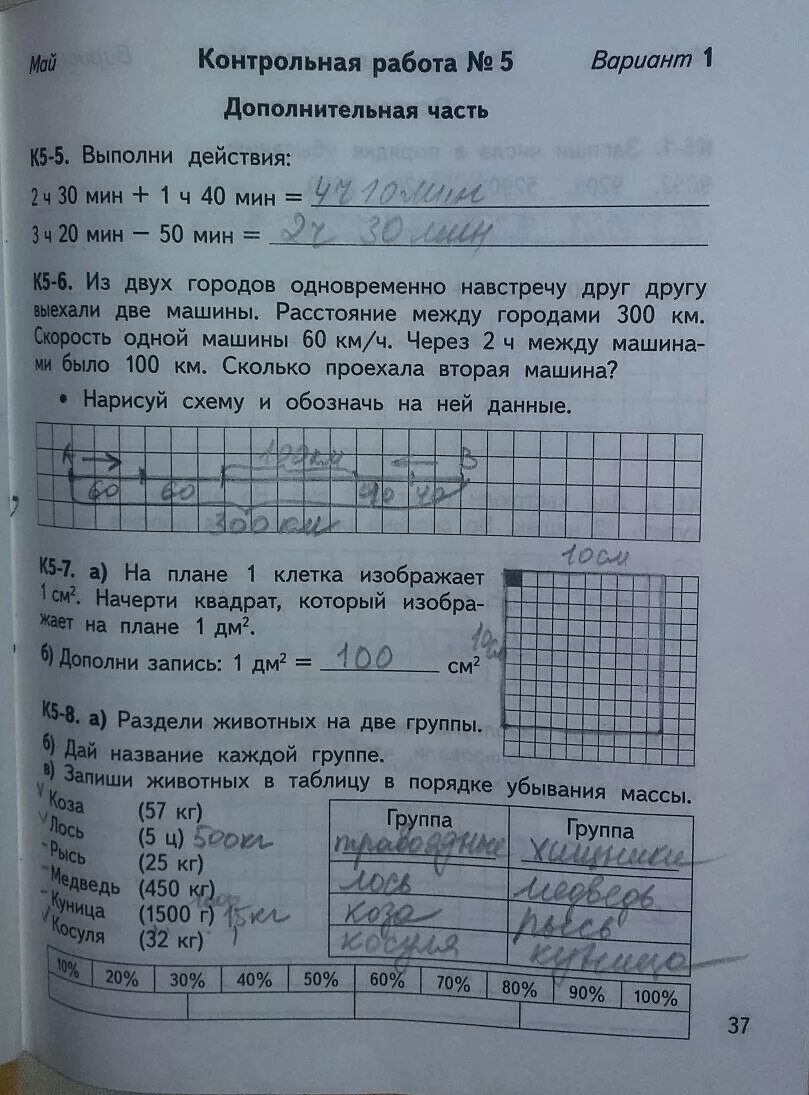 Май Контрольная работа № 5 Вариант 1
Дополнительная часть
К5-5. Выполни действия:
2 ч 30 мин + 1 ч 40 мин = 4ч 10мин
3 ч 20 мин − 50 мин = 2ч 30 мин
К5-6. Из двух городов одновременно навстречу друг другу
выехали две машины. Расстояние между городами 300 км.
Скорость одной машины 60 км/ч. Через 2 ч между машина-
ми было 100 км. Сколько проехала вторая машина?
• Нарисуй схему и обозначь на ней данные.
А 100км В
60 60 40 40
300 км
10см
К5-7. а) На плане 1 клетка изображает
1 см². Начерти квадрат, который изобра-
жает на плане 1 дм².
10см
б) Дополни запись: 1 дм² = 100 см²
К5-8. а) Раздели животных на две группы.
б) Дай название каждой группе.
в) Запиши животных в таблицу в порядке убывания массы.
Коза (57 кг)
Лось (5 ц) 500кг
Рысь (25 кг)
Медведь (450 кг)
Куница (1500 г) 15кг
Косуля (32 кг)
Группа Группа
травоядные хищники
лось медведь
коза рысь
косуля куница
10% 20% 30% 40% 50% 60% 70% 80% 90% 100%
37